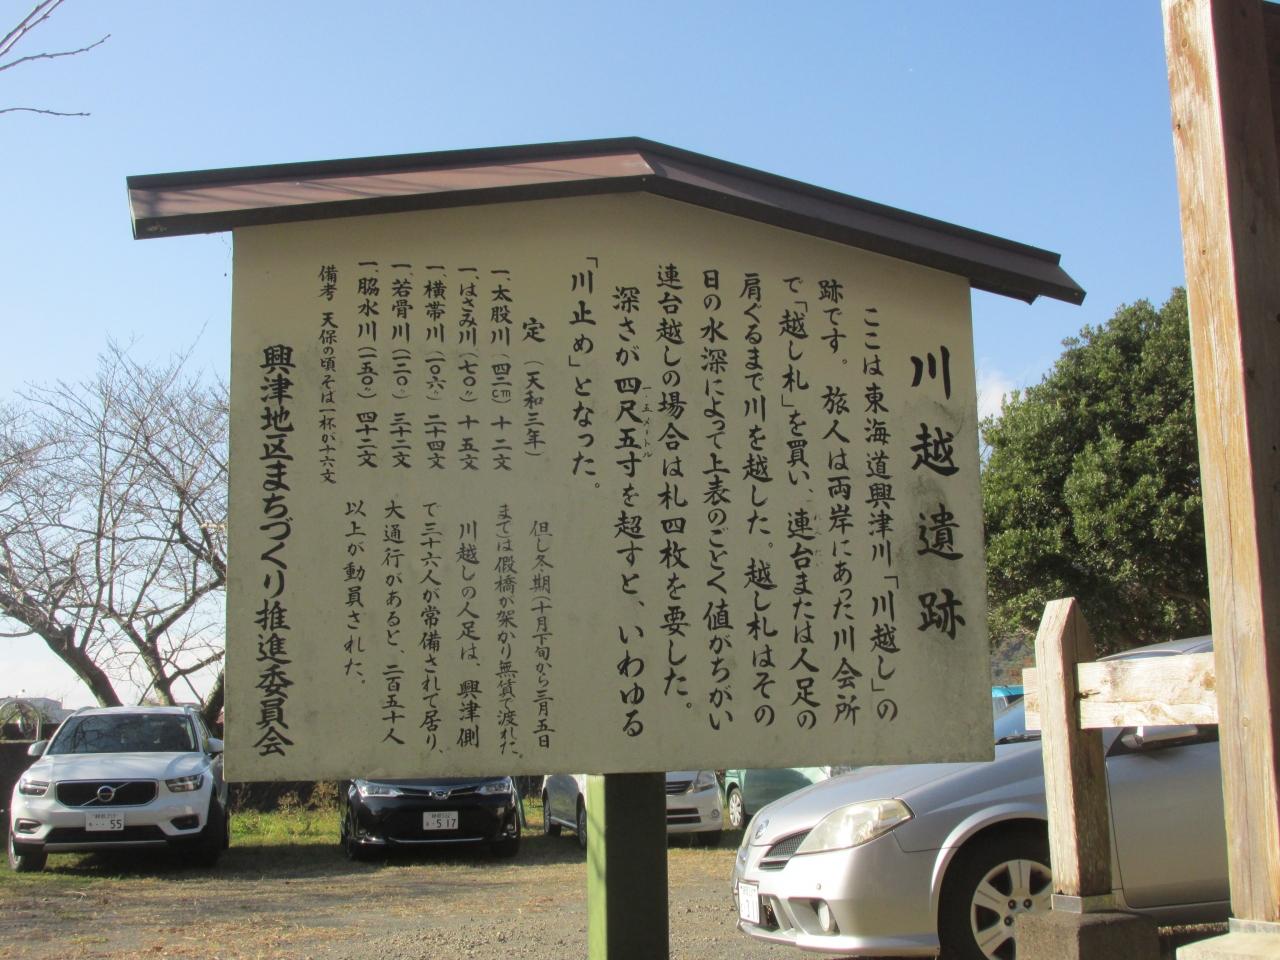 川越遺跡
ここは東海道興津川「川越し」の
跡です。旅人は両岸にあった川会所
で「越し札」を買い、連台または人足の
肩ぐるまで川を越した。越し札はその
日の水深によって上表のごとく値がちがい
連台越しの場合は札四枚を要した。
深さが四尺五寸を超すと、いわゆる
一・五メートル
「川止め」となった。
定(天和三年)
一、太股川(四二cm)十二文
一、はさみ川(七〇〃)十五文
一、横帯川(一〇六〃)二十四文
一、若骨川(一二〇〃)三十二文
一、脇水川(一五〇〃)四十二文
備考 天保の頃そば一杯が十六文
但し冬期(十月下旬から三月五日
まで)は假橋が架かり無賃で渡れた。
川越しの人足は、興津側
で三十六人が常備されて居り、
大通行があると、二百五十人
以上が動員された。
興津地区まちづくり推進委員会
55
517